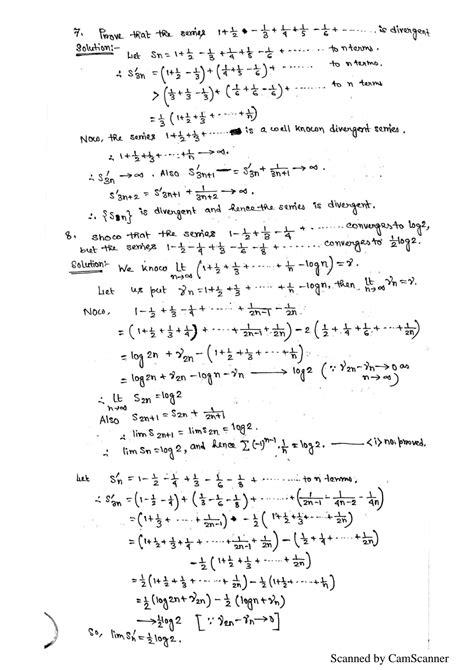 7. Prove that the series 1+½-⅓+¼+⅕-⅙+ ...... is divergent
Solution:- Let Sn = 1+½-⅓+¼+⅕-⅙+ ...... to n terms.
∴ S'3n = (1+½-⅓)+(¼+⅕-⅙)+ ...... to n terms.
> (⅓+⅓-⅓)+(⅙+⅙-⅙)+ ...... to n terms
= ⅓(1+½+⅓+ ...... +1/n)
Now, the series 1+½+⅓+ ...... is a well known divergent series.
∴ 1+½+⅓+ ...... +1/n → ∞.
∴ S'3n → ∞. Also S'3n+1 = S'3n + 1/(3n+1) → ∞.
S'3n+2 = S'3n+1 + 1/(3n+2) → ∞.
∴ {Sn} is divergent and hence the series is divergent.
8. Show that the series 1-½+⅓-¼+ ...... converges to log2,
but the series 1-½-¼+⅓-⅙-⅛+ ...... converges to ½log2.
Solution:- We know Lt n→∞ (1+½+⅓+ ...... +1/n -logn)=γ.
Let us put γn = 1+½+⅓+ ...... +1/n -logn, then Lt n→∞ γn = γ.
Now, 1-½+⅓-¼+ ...... +1/(2n-1) - 1/2n
= (1+½+⅓+¼+ ...... +1/(2n-1)+1/2n) -2(½+¼+⅙+ ...... +1/2n)
= log2n + γ2n - (1+½+⅓+ ...... +1/n)
= log2n + γ2n - logn - γn → log2 (∵ γ2n - γn → 0 as n→∞)
∴ Lt n→∞ S2n = log2
Also S2n+1 = S2n + 1/(2n+1)
∴ lim S2n+1 = lim S2n = log2.
∴ lim Sn = log2, and hence Σ(-1)ⁿ⁻¹·1/n = log2. —— <i> proved.
Let S'n = 1-½-¼+⅓-⅙-⅛+ ...... to n terms.
∴ S'3n = (1-½-¼)+(⅓-⅙-⅛)+ ...... +(1/(2n-1) - 1/(4n-2) - 1/4n)
= (1+⅓+ ...... +1/(2n-1)) - ½(1+½+⅓+ ...... +1/2n)
= (1+½+⅓+¼+ ...... +1/(2n-1)+1/2n) - (½+¼+ ...... +1/2n)
-½(1+½+ ...... +1/2n)
= ½(1+½+⅓+ ...... +1/2n) - ½(1+½+ ...... +1/n)
= ½(log2n+γ2n) - ½(logn+γn)
→ ½log2 [∵ γ2n - γn → 0]
So, lim S'n = ½log2.
Scanned by CamScanner